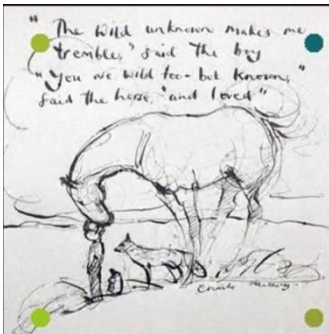 "The wild unknown makes me
tremble," said the boy
"You are wild too - but known,"
said the horse, "and loved"
Charlie Mackesy.